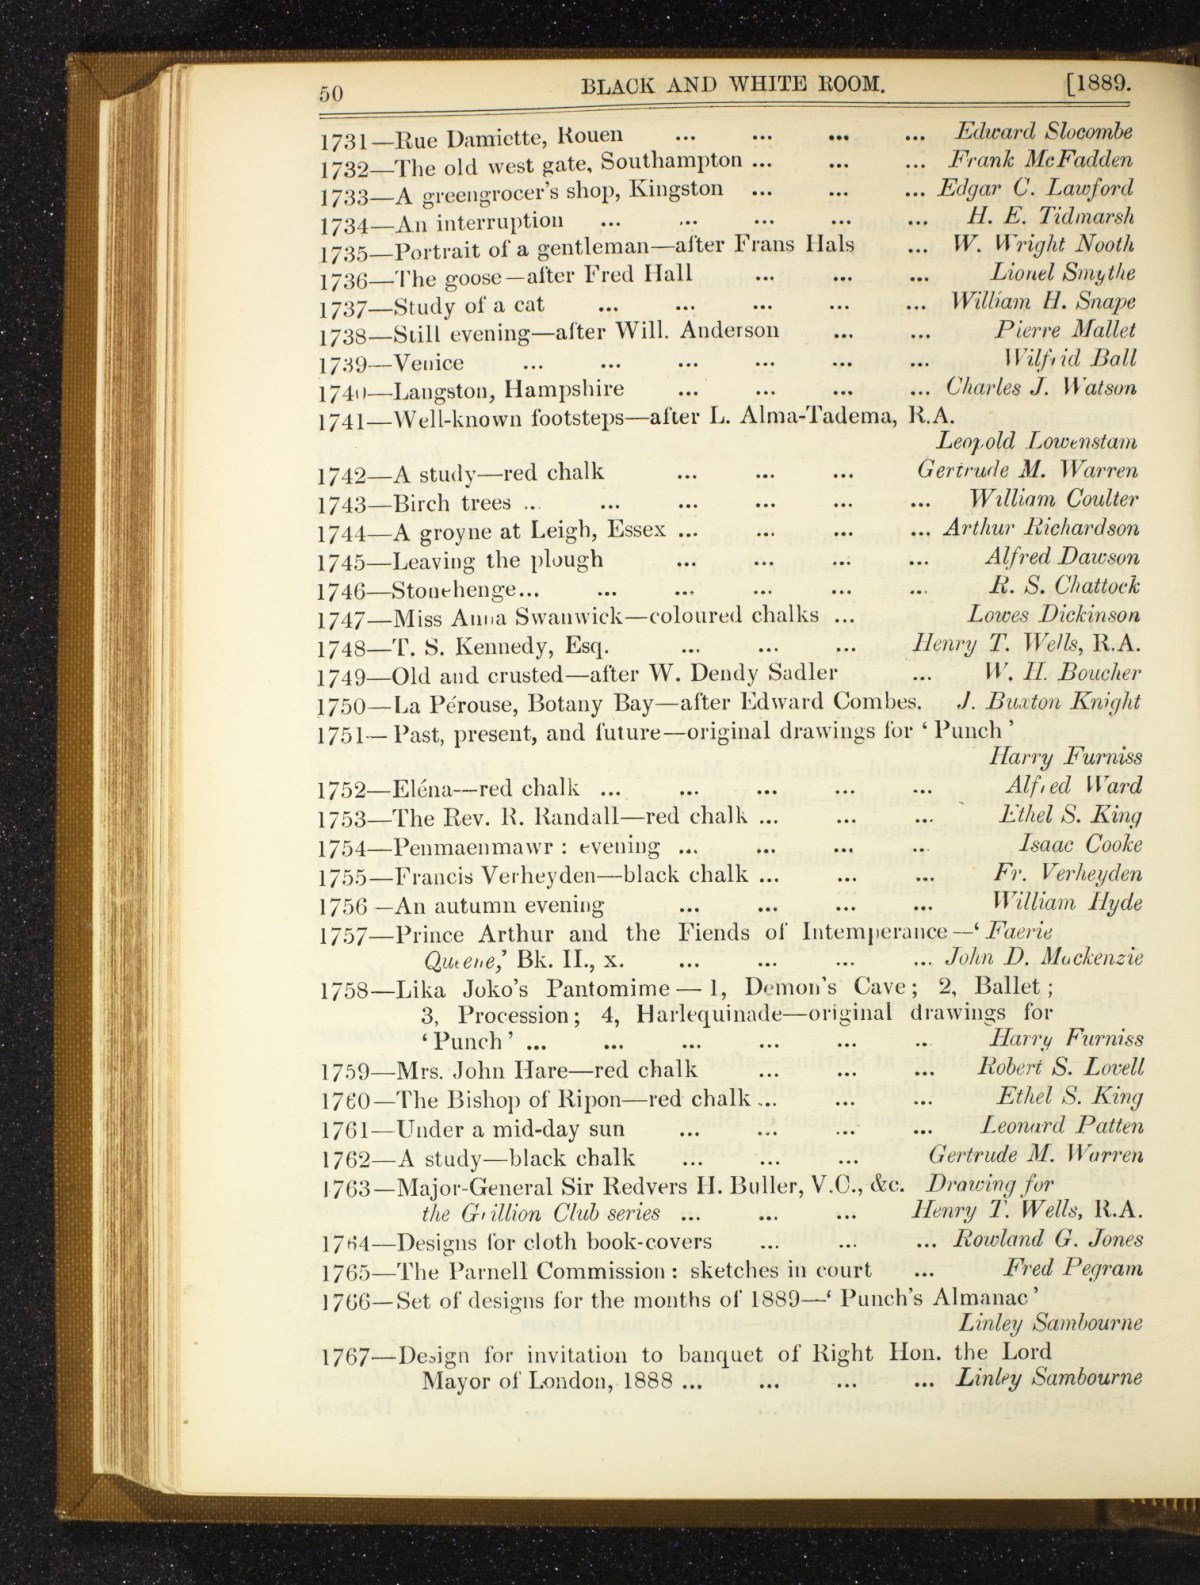 50 BLACK AND WHITE ROOM. [1889.
1731—Rue Damiette, Rouen ... ... ... ... Edward Slocombe
1732—The old west gate, Southampton ... ... ... Frank McFadden
1733—A greengrocer's shop, Kingston ... ... ... Edgar C. Lawford
1734—An interruption ... ... ... ... ... H. E. Tidmarsh
1735—Portrait of a gentleman—after Frans Hals ... W. Wright Nooth
1736—The goose—after Fred Hall ... ... ... Lionel Smythe
1737—Study of a cat ... ... ... ... ... William H. Snape
1738—Still evening—after Will. Anderson ... ... Pierre Mallet
1739—Venice ... ... ... ... ... ... Wilfrid Ball
1740—Langston, Hampshire ... ... ... ... Charles J. Watson
1741—Well-known footsteps—after L. Alma-Tadema, R.A.
Leopold Lowenstam
1742—A study—red chalk ... ... ... Gertrude M. Warren
1743—Birch trees ... ... ... ... ... ... William Coulter
1744—A groyne at Leigh, Essex ... ... ... ... Arthur Richardson
1745—Leaving the plough ... ... ... ... Alfred Dawson
1746—Stonehenge... ... ... ... ... ... R. S. Chattock
1747—Miss Anna Swanwick—coloured chalks ... Lowes Dickinson
1748—T. S. Kennedy, Esq. ... ... ... Henry T. Wells, R.A.
1749—Old and crusted—after W. Dendy Sadler ... W. H. Boucher
1750—La Pérouse, Botany Bay—after Edward Combes. J. Buxton Knight
1751—Past, present, and future—original drawings for ‘Punch’
Harry Furniss
1752—Eléna—red chalk ... ... ... ... ... Alfred Ward
1753—The Rev. R. Randall—red chalk ... ... ... Ethel S. King
1754—Penmaenmawr : evening ... ... ... ... Isaac Cooke
1755—Francis Verheyden—black chalk ... ... ... Fr. Verheyden
1756—An autumn evening ... ... ... ... William Hyde
1757—Prince Arthur and the Fiends of Intemperance—‘Faerie
Queene,’ Bk. II., x. ... ... ... ... John D. Mackenzie
1758—Lika Joko's Pantomime — 1, Demon's Cave; 2, Ballet;
3, Procession; 4, Harlequinade—original drawings for
‘Punch’ ... ... ... ... ... ... Harry Furniss
1759—Mrs. John Hare—red chalk ... ... ... Robert S. Lovell
1760—The Bishop of Ripon—red chalk ... ... ... Ethel S. King
1761—Under a mid-day sun ... ... ... ... Leonard Patten
1762—A study—black chalk ... ... ... Gertrude M. Warren
1763—Major-General Sir Redvers H. Buller, V.C., &c. Drawing for
the Grillion Club series ... ... ... Henry T. Wells, R.A.
1764—Designs for cloth book-covers ... ... ... Rowland G. Jones
1765—The Parnell Commission : sketches in court ... Fred Pegram
1766—Set of designs for the months of 1889—‘Punch's Almanac’
Linley Sambourne
1767—Design for invitation to banquet of Right Hon. the Lord
Mayor of London, 1888 ... ... ... ... Linley Sambourne